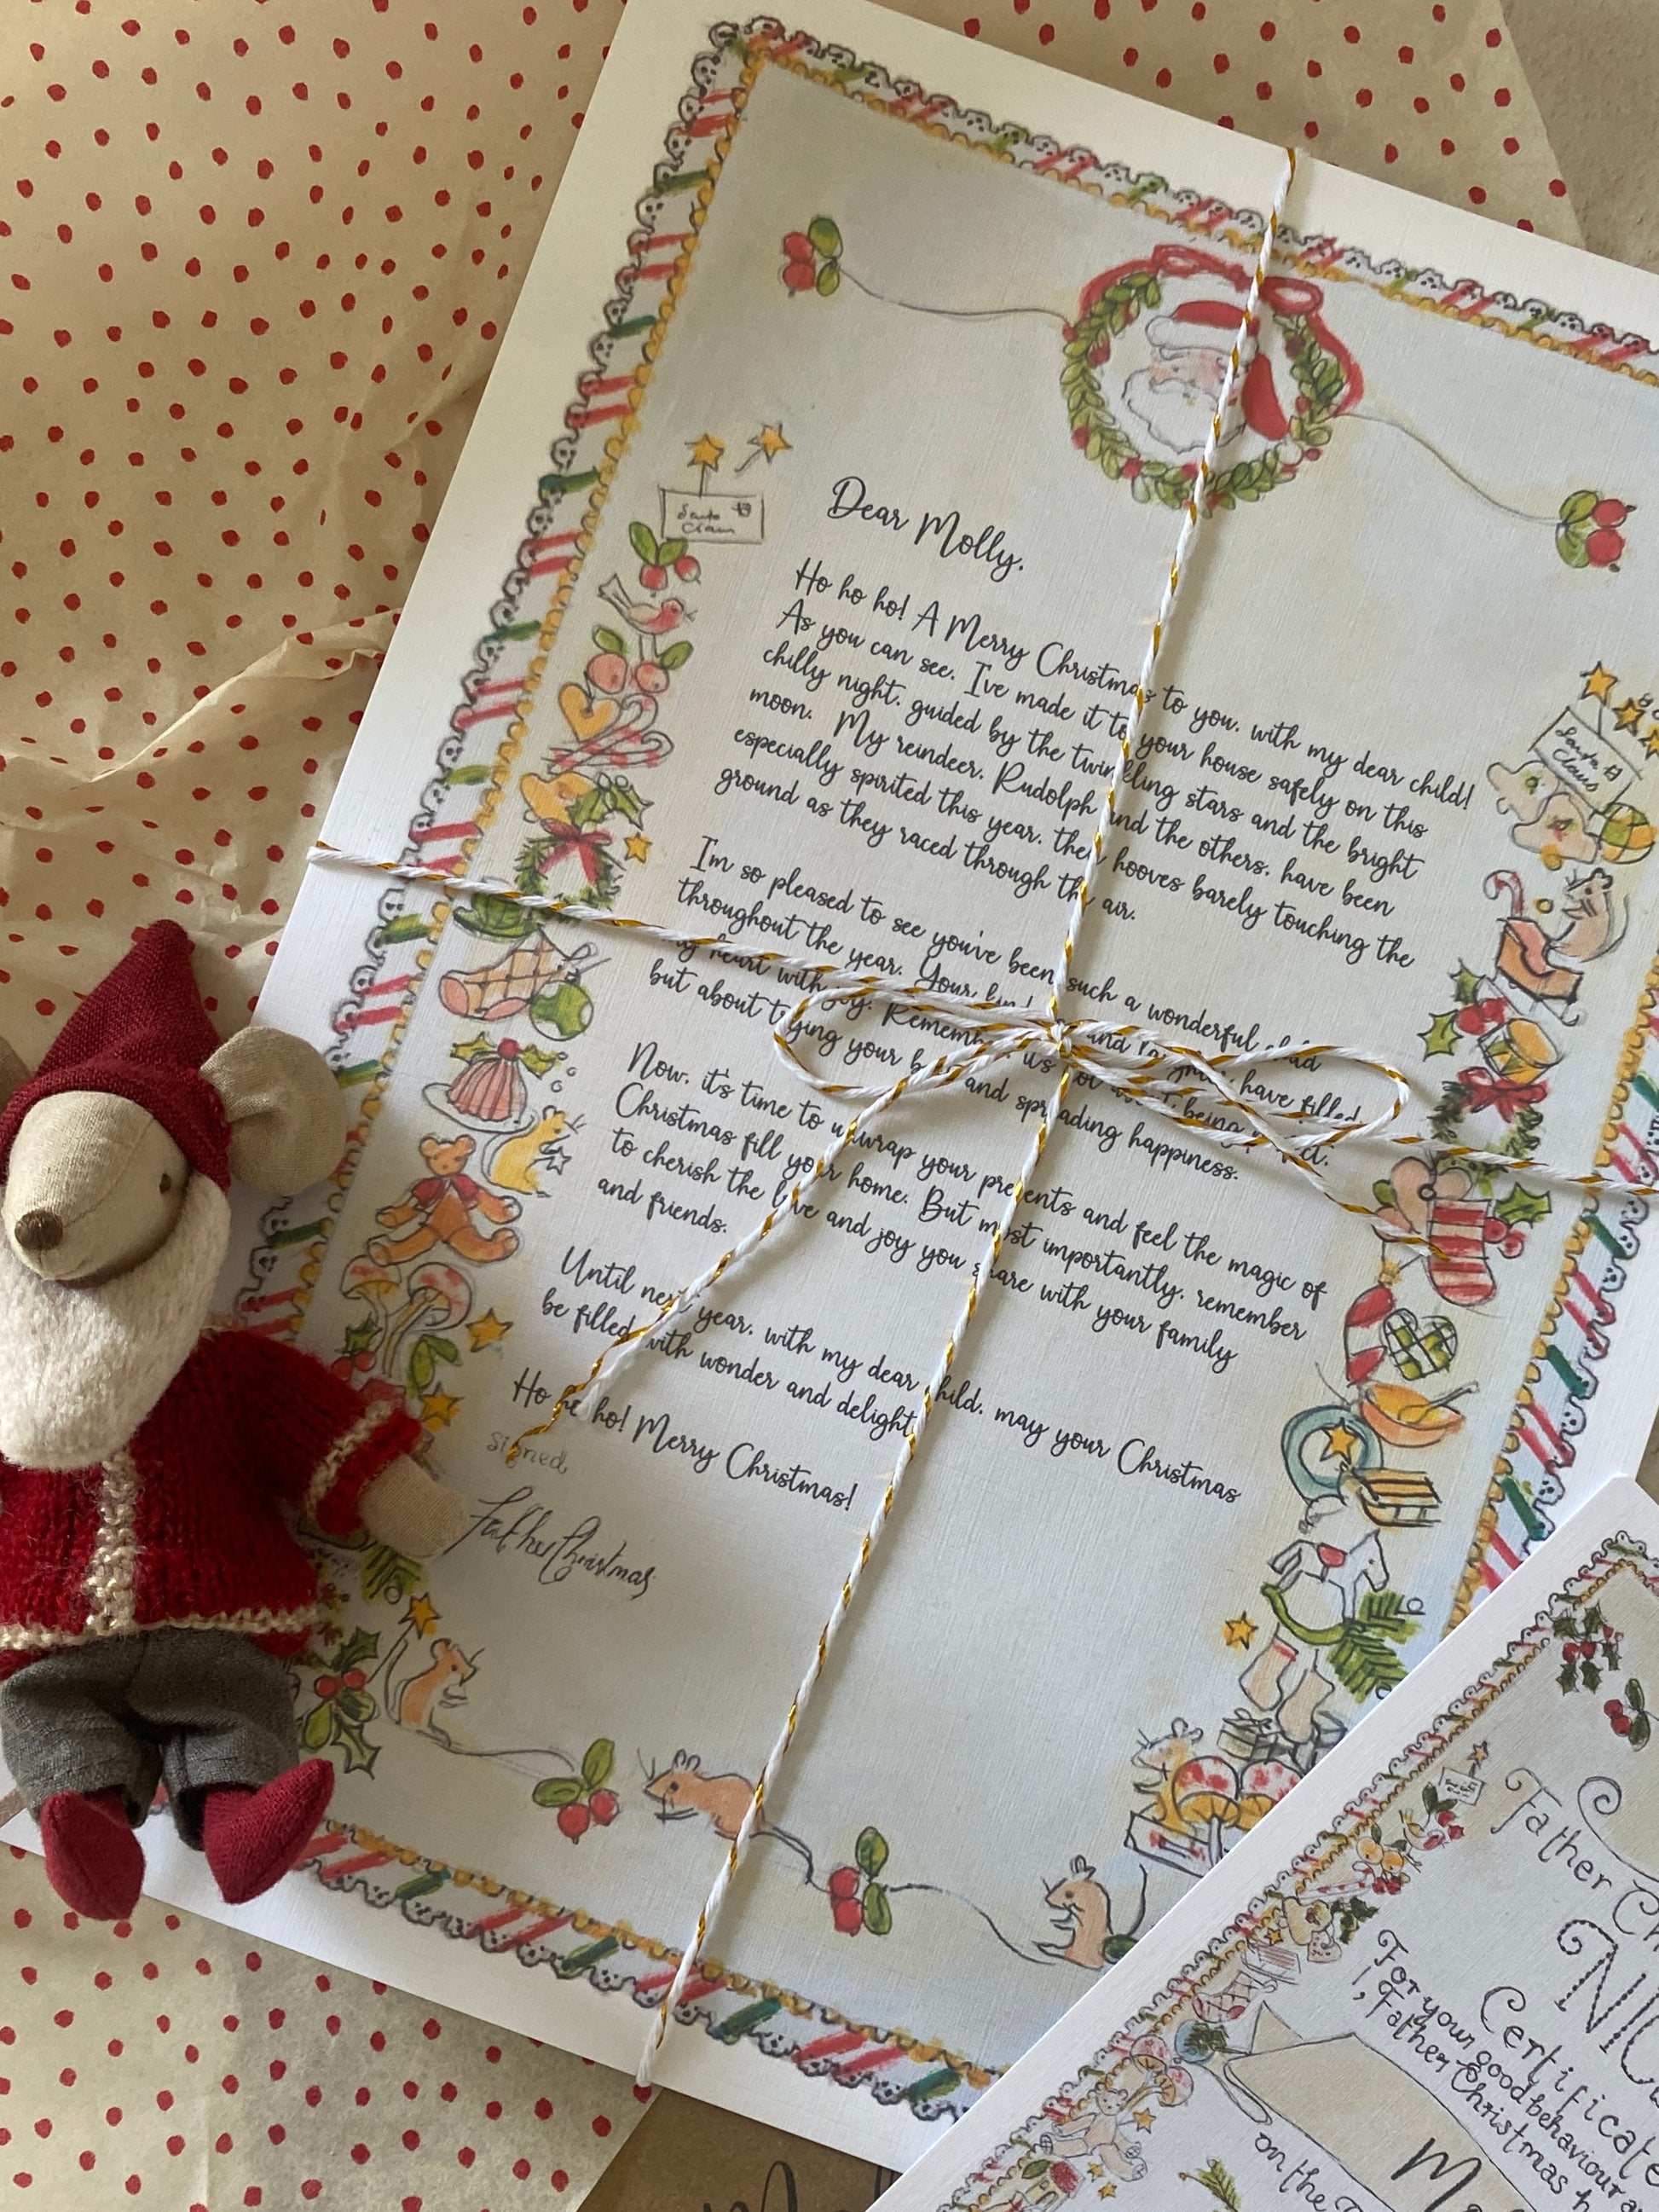 Dear Molly,
Ho ho ho! A Merry Christmas to you, with my dear child!
As you can see, I've made it to your house safely on this
chilly night, guided by the twinkling stars and the bright
moon. My reindeer, Rudolph and the others, have been
especially spirited this year, their hooves barely touching the
ground as they raced through the air.
I'm so pleased to see you've been such a wonderful child
throughout the year. Your and have filled
my heart with joy. Remember, it's not about being perfect,
but about trying your best and spreading happiness.
Now, it's time to unwrap your presents and feel the magic of
Christmas fill your home. But most importantly, remember
to cherish the love and joy you share with your family
and friends.
Until next year, with my dear child, may your Christmas
be filled with wonder and delight
Ho ho ho! Merry Christmas!
signed,
Father Christmas
Santa
Claus
Santa
Claus
Father Ch
NIC
Certificate
For your good behaviour
I, Father Christmas h
on the